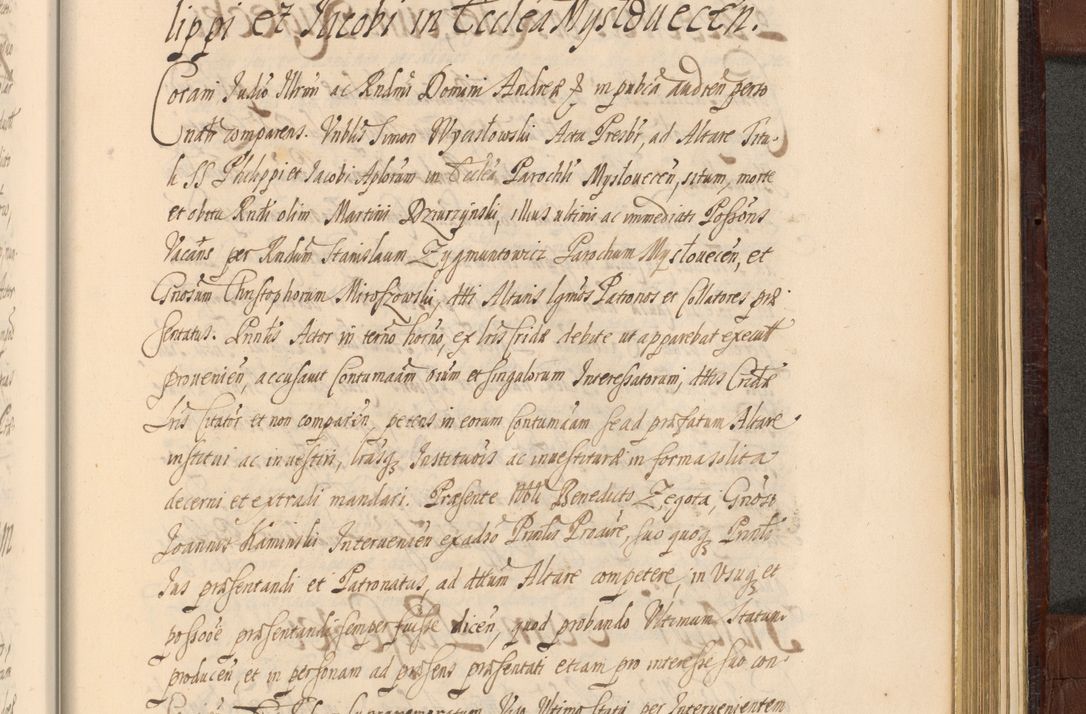 lippi et Jacobi in Ecclea Myslovecen.
Coram Judio Illrmi ac Rndmi Domini Andreæ &c in publca audien perso
naltr comparens. Vnblis Simon Wycisłowski Acta Presbr, ad Altare Titu-
li SS Philippi et Jacobi Aplorum in Ecclea Parochli Myslovecen, situm, morte
et obitu Rndi olim Martini Dziurzynski, illius ultimi ac immediati Possoris
Vacans per Rndum Stanislaum Zygmuntowicz Parochum Mysłovecen, et
Gnosum Christophorum Miroszowski, dtti Altaris Ignos Patronos et Collatores præ-
sentatus. Pnntis Actor in termo horno, ex lris cridæ debite ut apparebat execut
provenien, accusavit Contumaam oium et singulorum Interessatorum, dttis Cridæ
Lris citatr et non comparen, petens in eorum Contumaam se ad præfatum Altare
institui ac investiri, lrasq Institutois ac investituræ in forma solita
decerni et extradi mandari. Præsente Nbli Benedicto Zegota, Gnosi
Joannis Kaminski Intervenien ex adso Prntis Procure, suo quoq Prnli
Jus præsentandi et Patronatus, ad dttum Altare competere, in Vsuq et
possoe præsentandi semper fuisse dicen, quod probando Vltimum Statum
producen, et in personam ad præsens præsentati etiam pro interesse suo con-
Vltimo Statu per Intervenientem